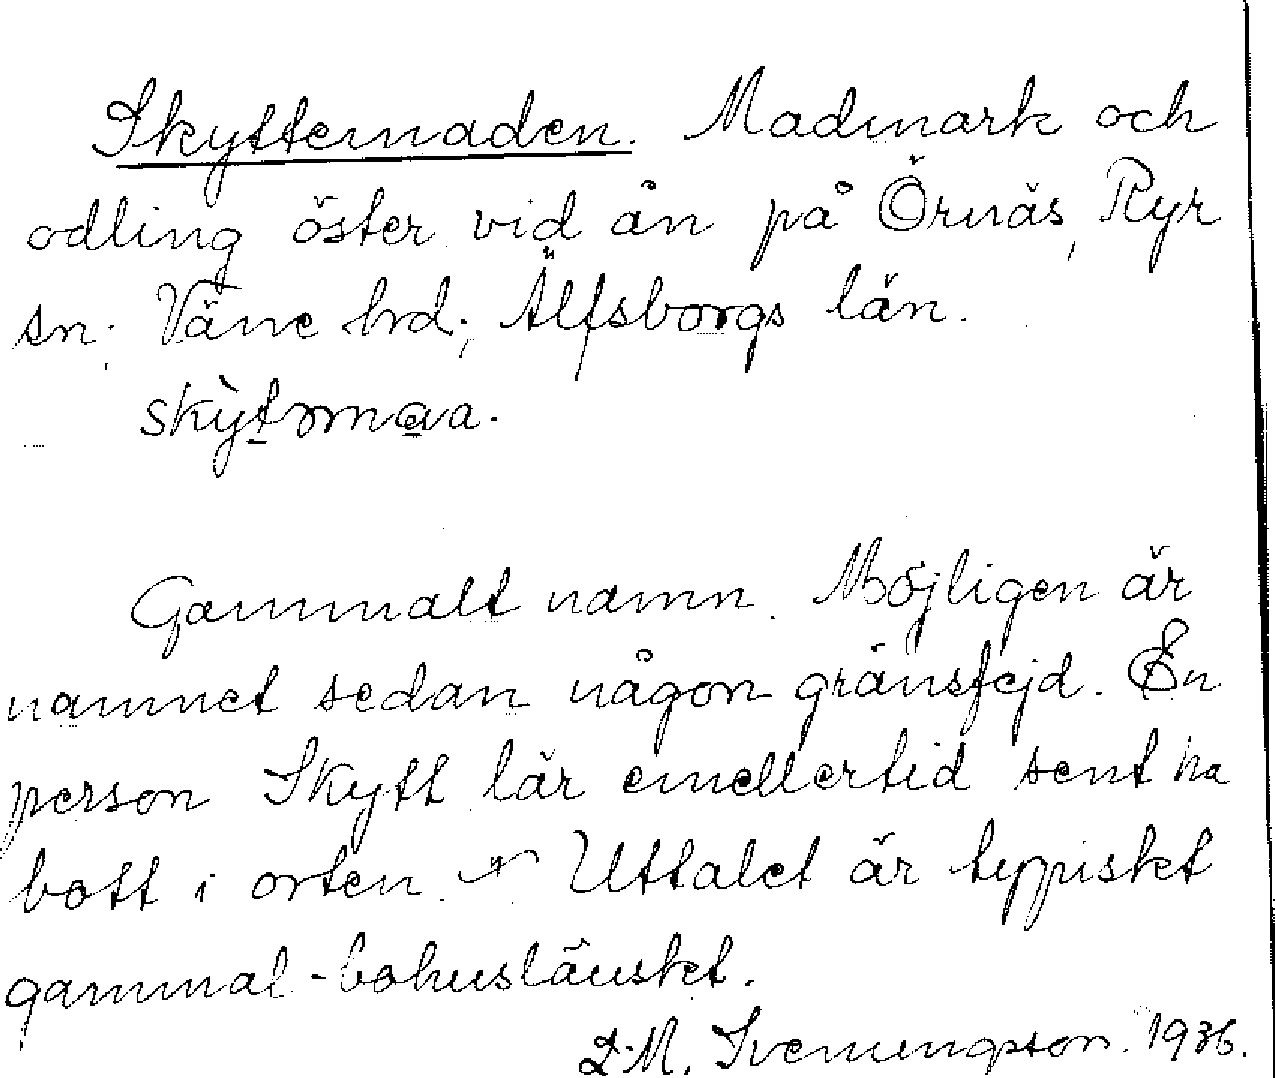 Skyttemaden. Madmark och
odling öster vid ån på Örnäs, Ryr
sn; Väne hrd; Älfsborgs län.
skỳtəmava.
Gammalt namn. Möjligen är
namnet sedan någon gränsfejd. En
person Skytt lär emellertid sent ha
bott i orten. Uttalet är typiskt
gammal-bohuslänsket.
D.M. Svenungsson. 1936.